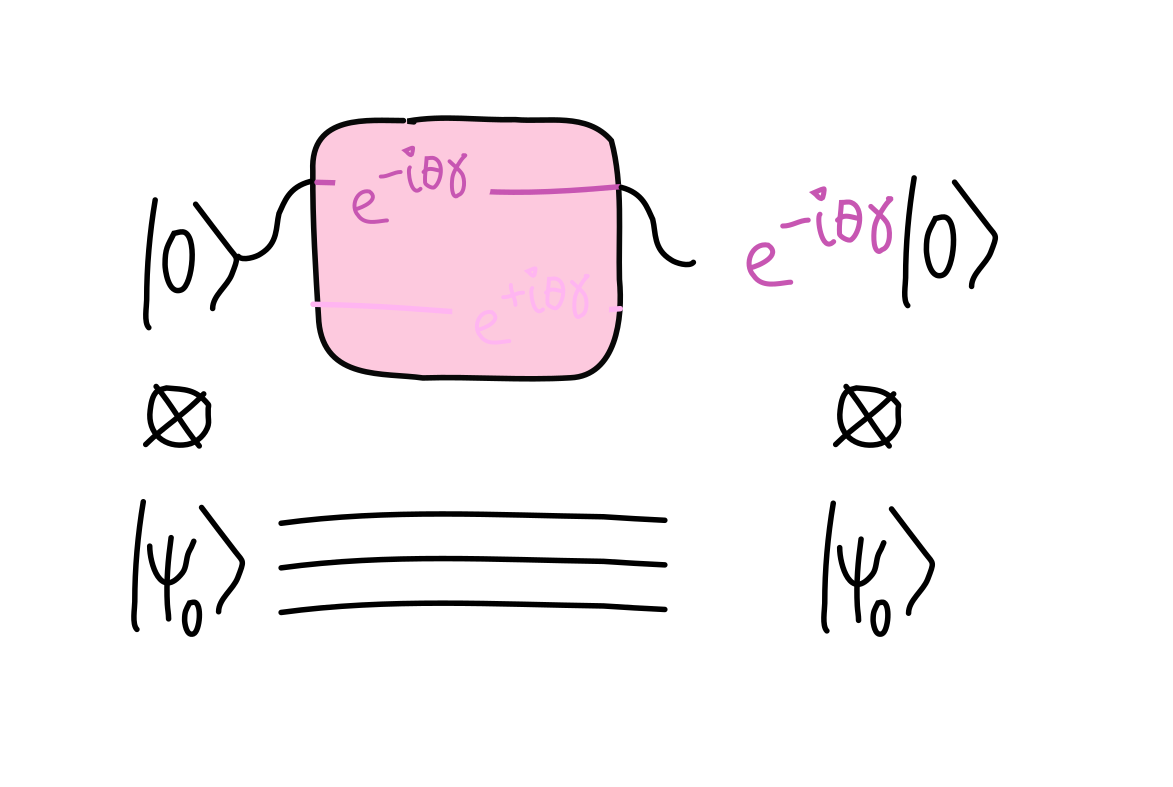 |0⟩ e^{-iθγ} e^{-iθγ}|0⟩
e^{+iθγ}
⊗ ⊗
|ψ₀⟩ |ψ₀⟩